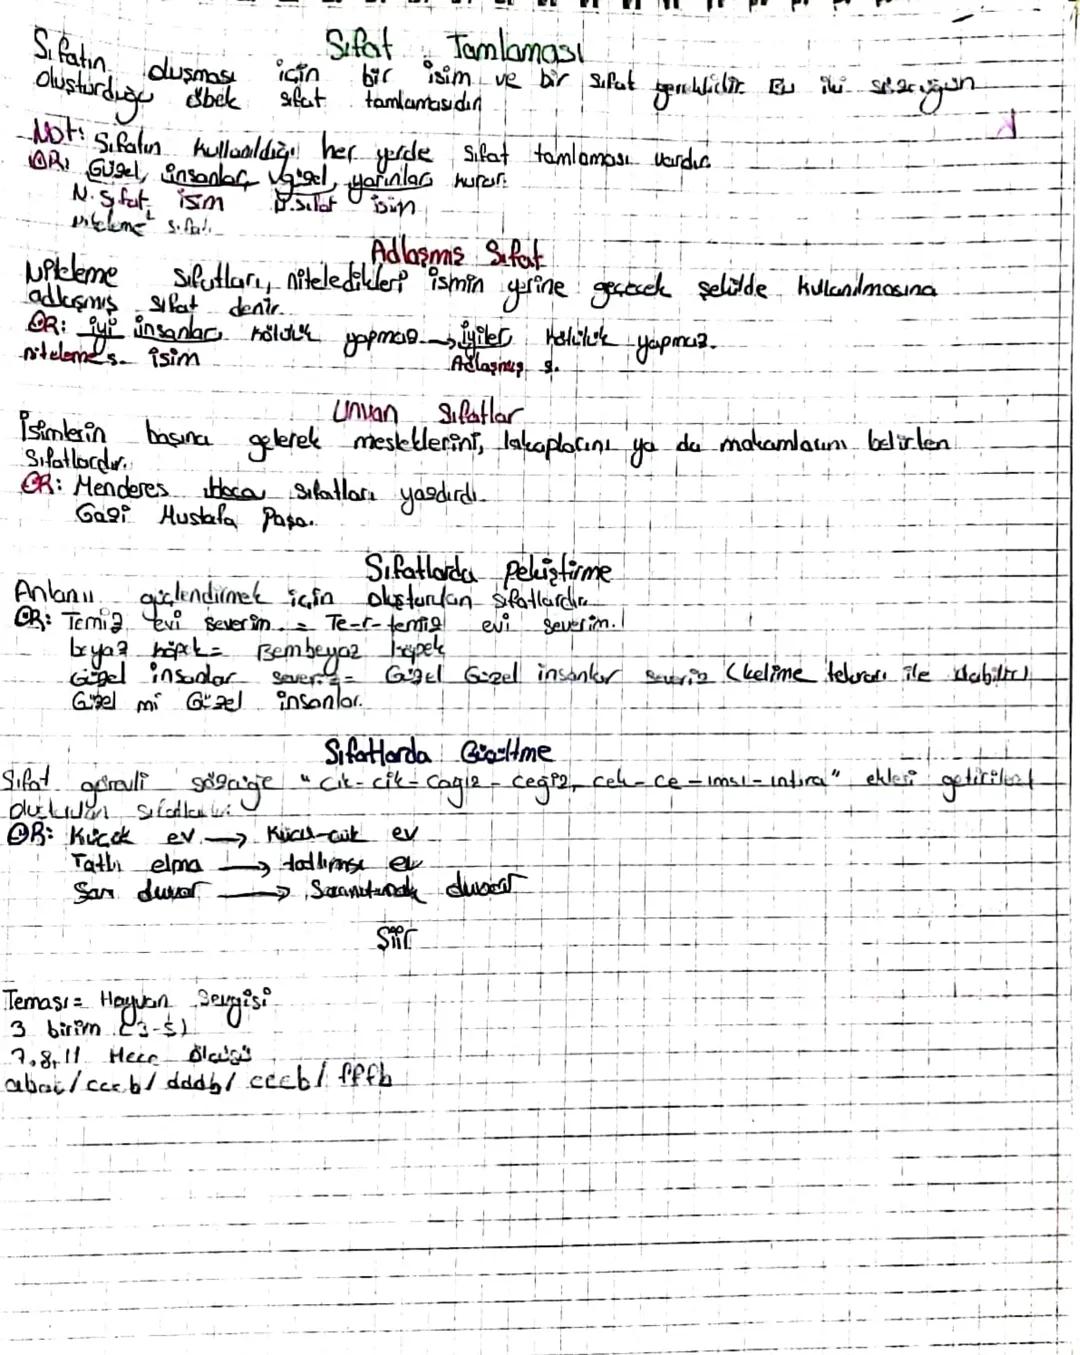 Sıfat Tamlaması
Sıfatın oluşması için bir isim ve bir sıfat gereklidir. Bu iki sözcüğün
oluşturduğu öbek sıfat tamlamasıdır.
Not: Sıfatın kullanıldığı her yerde sıfat tamlaması vardır.
ÖR: Güzel insanlar, güzel yarınlar kurar.
N. Sıfat isim N. Sıfat isim
niteleme sıfatı
Adlaşmış Sıfat
Niteleme sıfatları, niteledikleri ismin yerine geçecek şekilde kullanılmasına
adlaşmış sıfat denir.
ÖR: iyi insanlar kötülük yapmaz → iyiler kötülük yapmaz.
niteleme s. isim Adlaşmış s.
Unvan Sıfatlar
İsimlerin başına gelerek mesleklerini, lakaplarını ya da makamlarını belirten
Sıfatlardır.
ÖR: Menderes Hoca sıfatları yazdırdı.
Gazi Mustafa Paşa.
Sıfatlarda Pekiştirme
Anlamı güçlendirmek için oluşturulan sıfatlardır.
ÖR: Temiz evi severim. = Te-r-temiz evi severim.
beyaz köpek = Bembeyaz köpek
Güzel insanlar severiz = Güzel Güzel insanlar severiz (kelime tekrarı ile olabilir)
Güzel mi Güzel insanlar.
Sıfatlarda Küçültme
Sıfat görevli sözcüğe "cik-cik-cağız-ceğiz, cek-ce-ımsı-ıntıra" ekleri getirilerek
oluşturulan sıfatlardır.
ÖR: Küçük ev → Küçü-cük ev
Tatlı elma → tatlımsı ev
Sarı duvar → duvar
Şiir
Teması = Hayvan Sevgisi
3 birim (3-5)
7, 8, 11 Hece ölçüsü
abab/cccb/dddb/eeeb/fffb